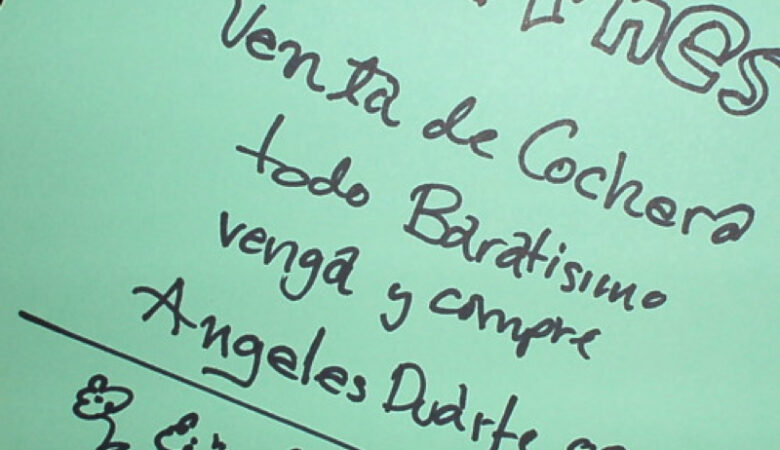 Venta de Cochera
todo Baratisimo
venga y compre
Angeles Duarte